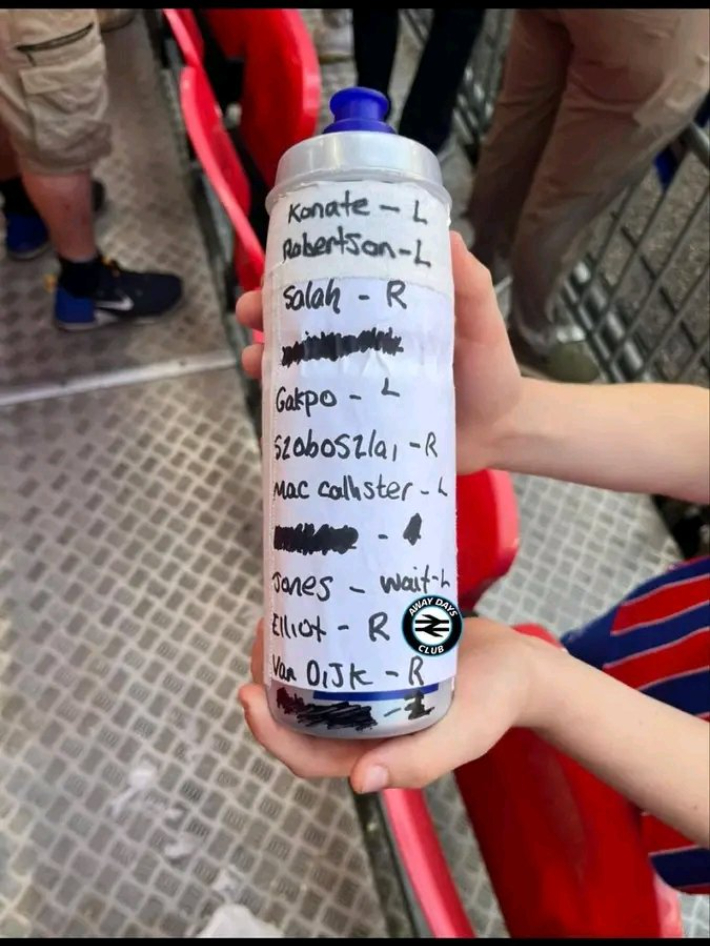 Konate - L
Robertson - L
Salah - R
Gakpo - L
Szoboszlai - R
Mac callister - L
Jones - wait - L
Elliot - R
AWAY DAYS
CLUB
Van DiJk - R